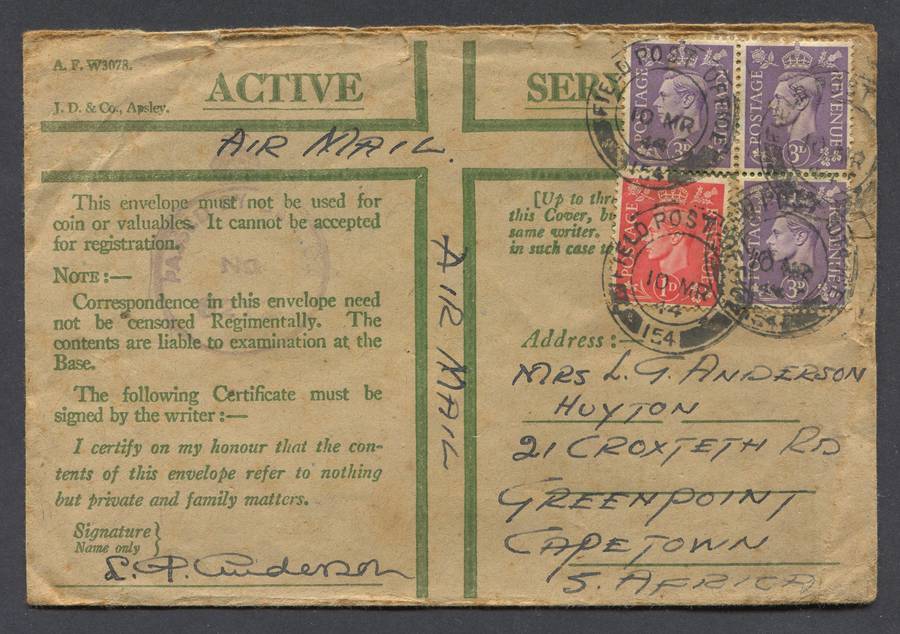 A. F. W3078.
J. D. & Co., Apsley.
ACTIVE
AIR MAIL.
This envelope must not be used for
coin or valuables. It cannot be accepted
for registration.
NOTE:—
Correspondence in this envelope need
not be censored Regimentally. The
contents are liable to examination at the
Base.
The following Certificate must be
signed by the writer:—
I certify on my honour that the con-
tents of this envelope refer to nothing
but private and family matters.
Signature
Name only
L. P. Anderson
AIR MAIL
SER
[Up to thr
this Cover, b
same writer.
in such case t
Address:—
MRS L. G. ANDERSON
HUYTON
21 CROXTETH RD
GREENPOINT
CAPETOWN
S. AFRICA
POSTAGE
3D
POSTAGE REVENUE
3D
POSTAGE
1D
3D
FIELD POST OFFICE
10 MR
44
154
FIELD POST
10 MR
44
154